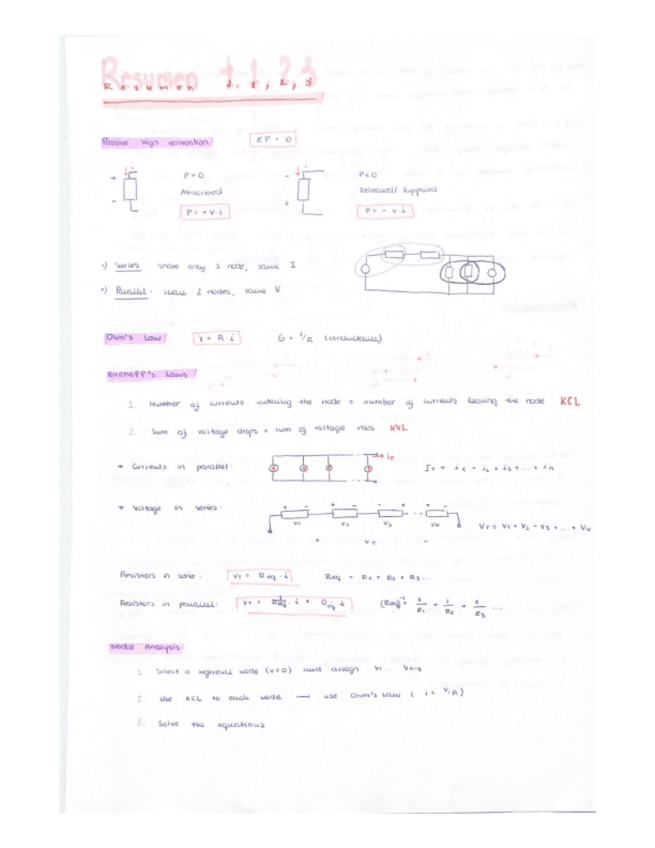 Resumen t.1,2,3
Resumen t.1,2,3
Passive sign convention ΣP = 0
+ - i P>0 Absorbed P = +v·i
- + i P<0 Released/ Supplied P = - v·i
•) Series: share only 1 node, same I
•) Parallel: share 2 nodes, same V
Ohm's Law/ V = R·i G = 1/R (conductance)
Kirchoff's Laws/
1. Number of currents entering the node = number of currents leaving the node KCL
2. Sum of voltage drops = sum of voltage rises KVL
+ Currents in parallel: iT IT = i1 - i2 + i3 + ... + in
+ Voltage in series: + - + - - + + -
V1 V2 V3 VN
+ VT - VT = V1 + V2 - V3 + .. + VN
Resistors in serie: VT = Req · i Req = R1 + R2 + R3 ...
Resistors in parallel: (Req)⁻¹ = 1/R1 + 1/R2 + 1/R3 ...
Nodal Analysis
1. Select a reference node (v=0) and assign V1 ... Vn-1
2. Use KCL to each node → use Ohm's Law ( i = V/R)
3. Solve the equations